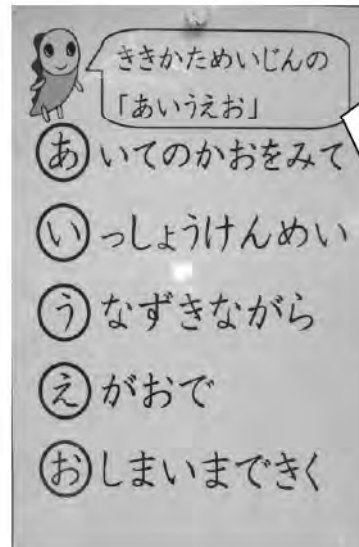 ききかためいじんの
「あいうえお」
あいてのかおをみて
いっしょうけんめい
うなずきながら
えがおで
おしまいまできく